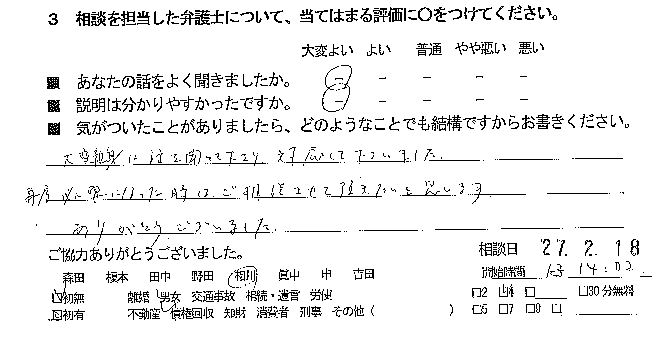 3 相談を担当した弁護士について、当てはまる評価に〇をつけてください。
大変よい よい 普通 やや悪い 悪い
あなたの話をよく聞きましたか。 － － － － －
説明は分かりやすかったですか。 － － － － －
気がついたことがありましたら、どのようなことでも結構ですからお書きください。
大変親身に話を聞いて下さり 対応して下さいました
再度 必要になった時は、ご相談させて頂きたいと思います
ありがとうございました
ご協力ありがとうございました。
相談日 27.2.18
森田 榎本 田中 野田 相川 眞中 申 吉田
開始時間 14:02
□初無 離婚 男女 交通事故 相続・遺言 労使
□2 □4 □ □30分無料
□初有 不動産 債権回収 知財 消費者 刑事 その他( )
□5 □7 □9 □